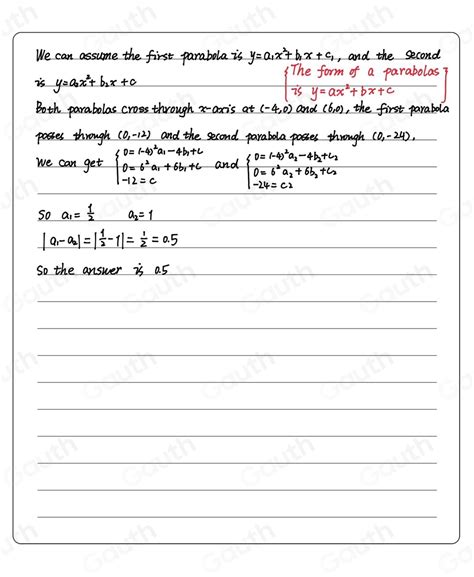 We can assume the first parabola is y=a₁x²+b₁x+c₁, and the second
is y=a₂x²+b₂x+c
{The form of a parabolas
is y=ax²+bx+c}
Both parabolas cross through x-axis at (-4,0) and (6,0), the first parabola
passes through (0,-12) and the second parabola passes through (0,-24).
We can get { 0=(-4)²a₁-4b₁+c and { 0=(-4)²a₂-4b₂+c₂
0=6²a₁+6b₁+c 0=6²a₂+6b₂+c₂
-12=c -24=c₂
So a₁=1/2 a₂=1
|a₁-a₂|=|1/2-1|=1/2=0.5
So the answer is 0.5
Gauth